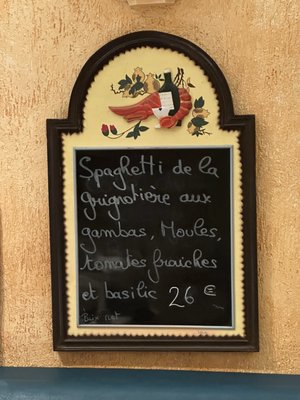 Spaghetti de la
grignotière aux
gambas, Moules,
tomates fraiches
et basilic 26 €
Prix net